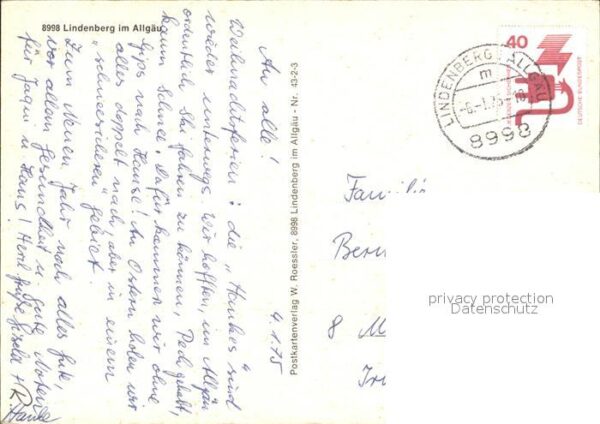 8998 Lindenberg im Allgäu
An alle!
4.1.75
Weihnachtsferien: die „Hankes" sind
wieder unterwegs. Wir hofften, im Allgäu
ordentlich Ski fahren zu können, Pech gehabt,
kaum Schnee. Dafür kommen wir ohne
Gips nach Hause! An Ostern holen wir
alles doppelt nach, aber in einem
Gebiet.
Zum Neuen Jahr noch alles Gute,
vor allem Gesundheit u. gute Noten
für Jaqu u. Hans! Herzl. Grüße Gisela + R.
Hanke
Postkartenverlag W. Roessler, 8998 Lindenberg im Allgäu - Nr. 43-2-3
LINDENBERG, ALLGÄU
m
-6.-1.75-
8998
40
DEUTSCHE BUNDESPOST
Familie
Bern
8 M
privacy protection
Datenschutz